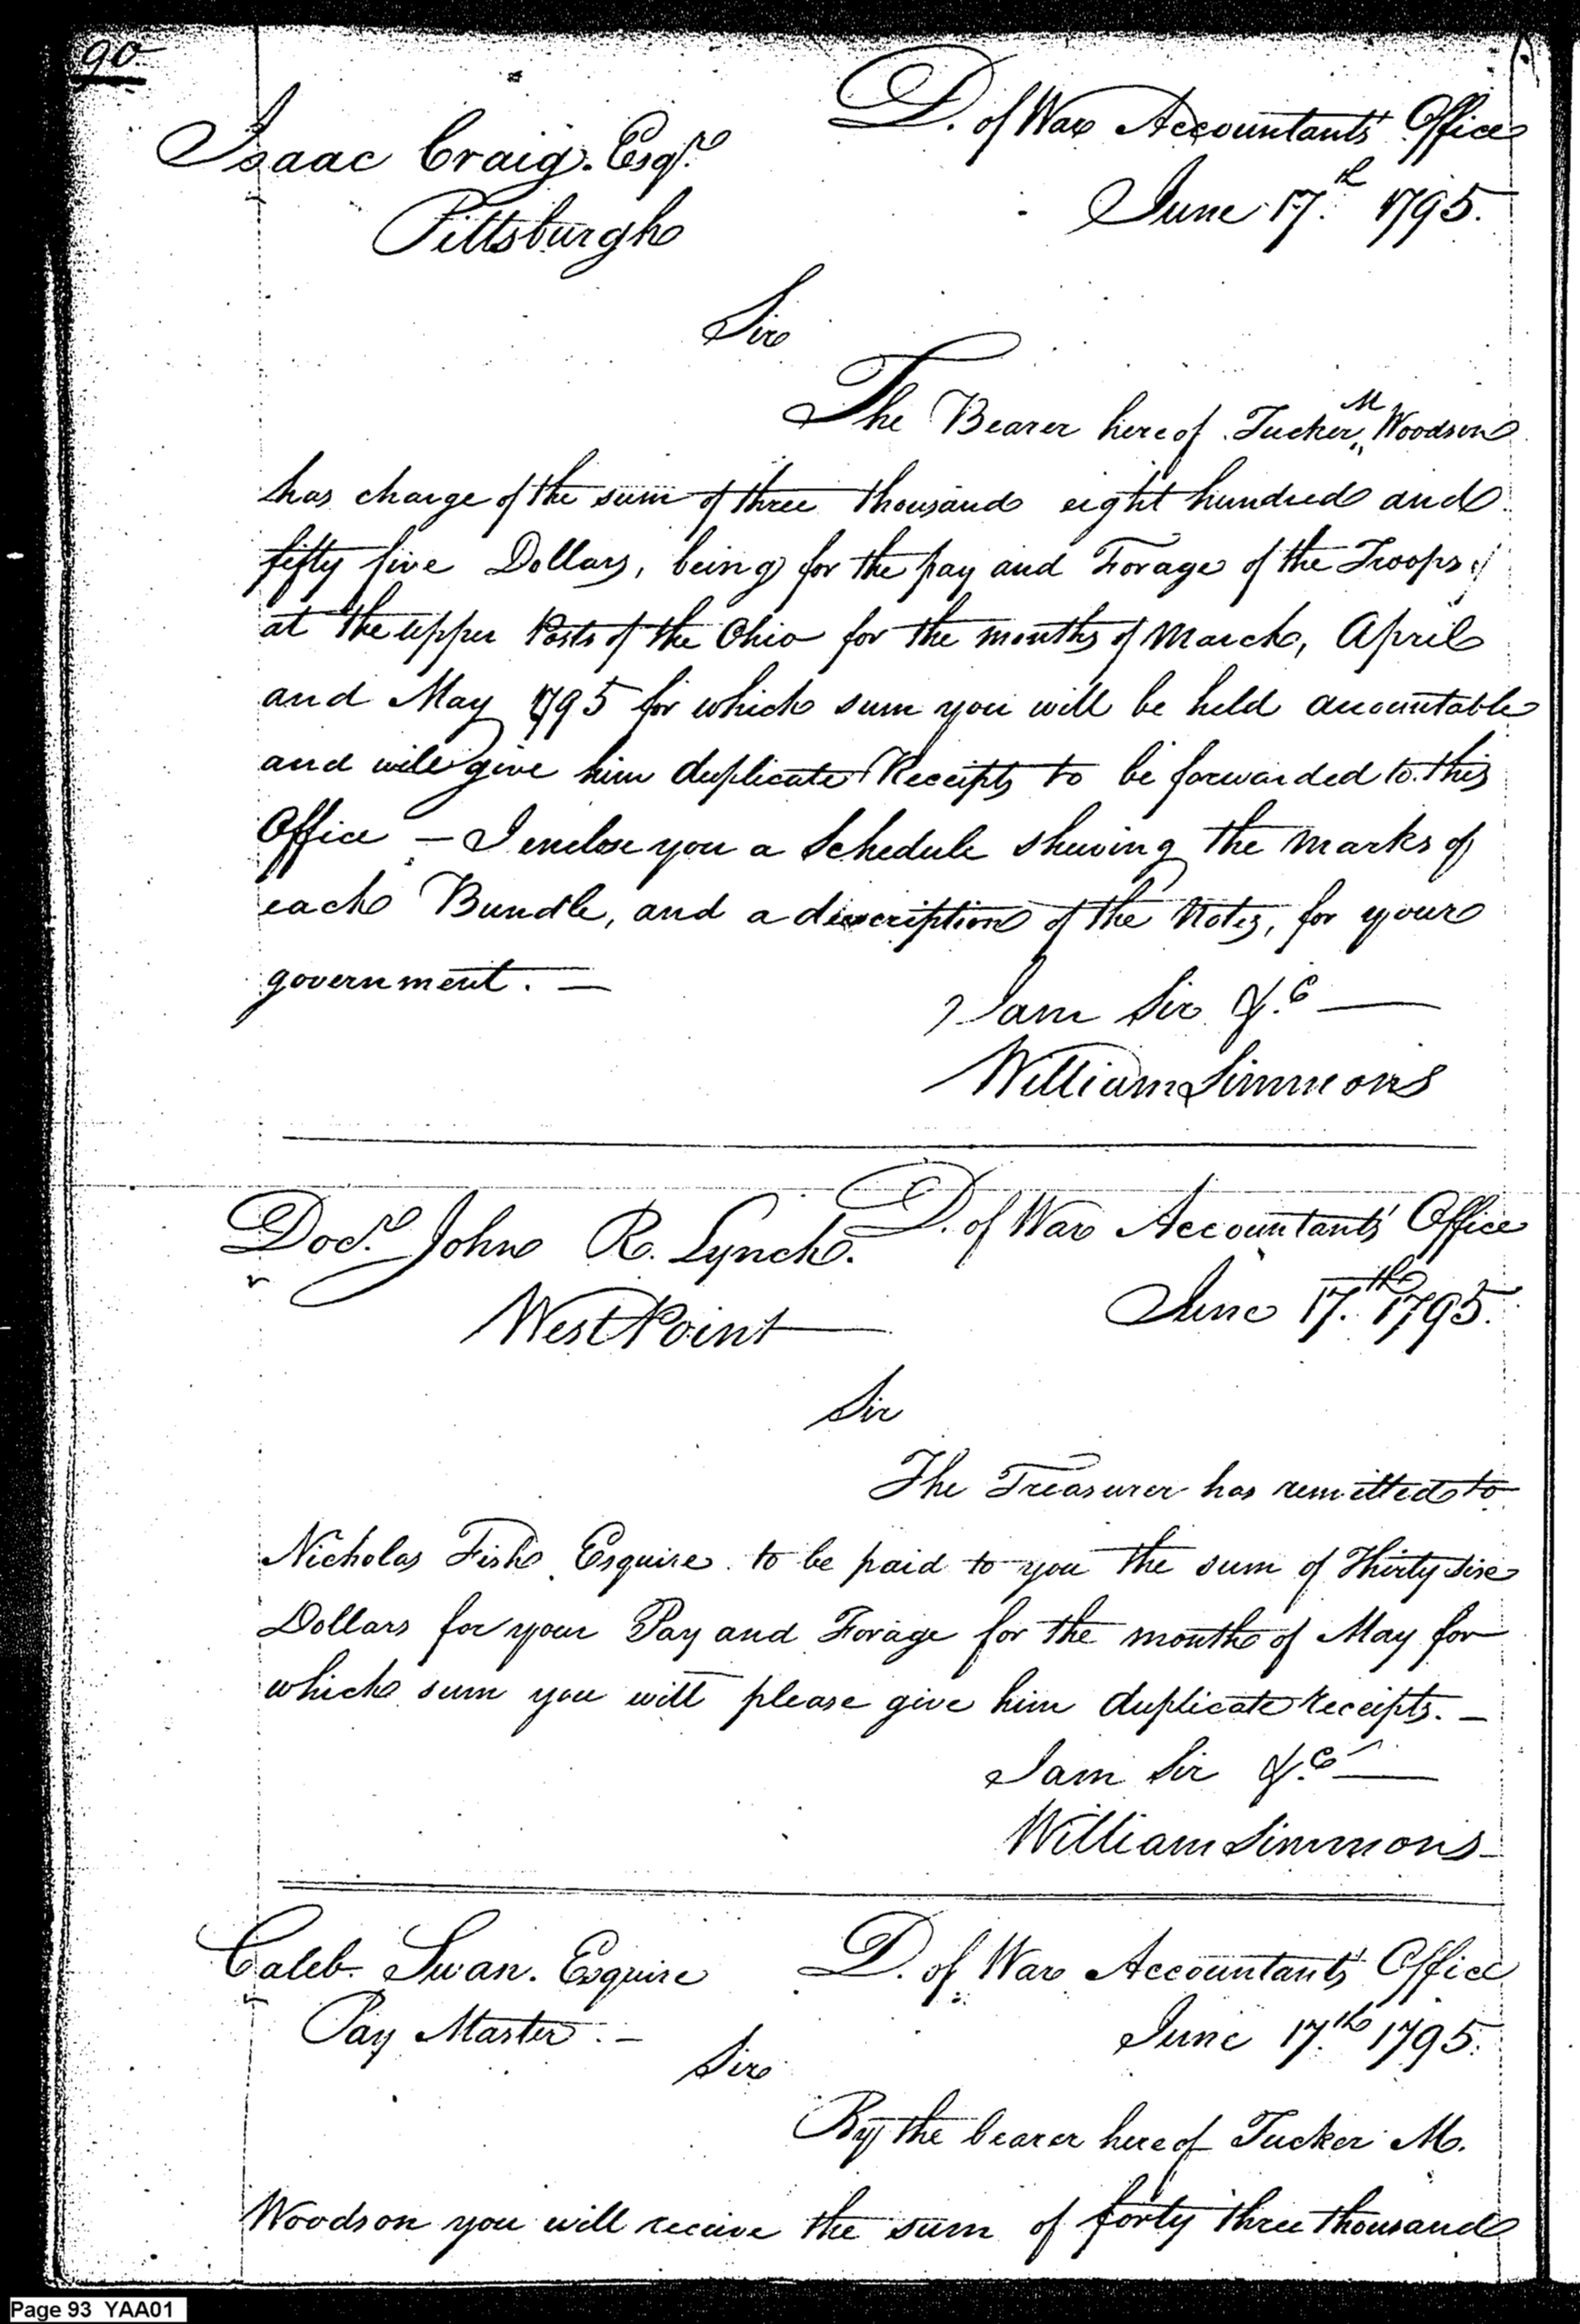 90
D. of War Accountants Office
Isaac Craig. Esqr.
June 17th. 1795.
Pittsburgh
Sir
The Bearer hereof Tucker M Woodson
has charge of the sum of three thousand eight hundred and
fifty five Dollars, being for the pay and Forage of the Troops
at the upper Posts of the Ohio for the months of March, April
and May 1795 for which sum you will be held accountable
and will give him duplicate Receipts to be forwarded to this
Office – I enclose you a Schedule shewing the marks of
each Bundle, and a description of the Notes, for your
government. —
I am Sir &c. —
William Simmons
D. of War Accountants' Office
Docr. John R. Lynch.
June 17th. 1795.
West Point
Sir
The Treasurer has remitted to
Nicholas Fish Esquire to be paid to you the sum of Thirty six
Dollars for your Pay and Forage for the month of May for
which sum you will please give him duplicate receipts. –
I am Sir &c. —
William Simmons
Caleb Swan. Esquire
D. of War Accountants Office
Pay Master. –
June 17th. 1795.
Sir
By the bearer hereof Tucker M.
Woodson you will receive the sum of forty three thousand
Page 93 YAA01